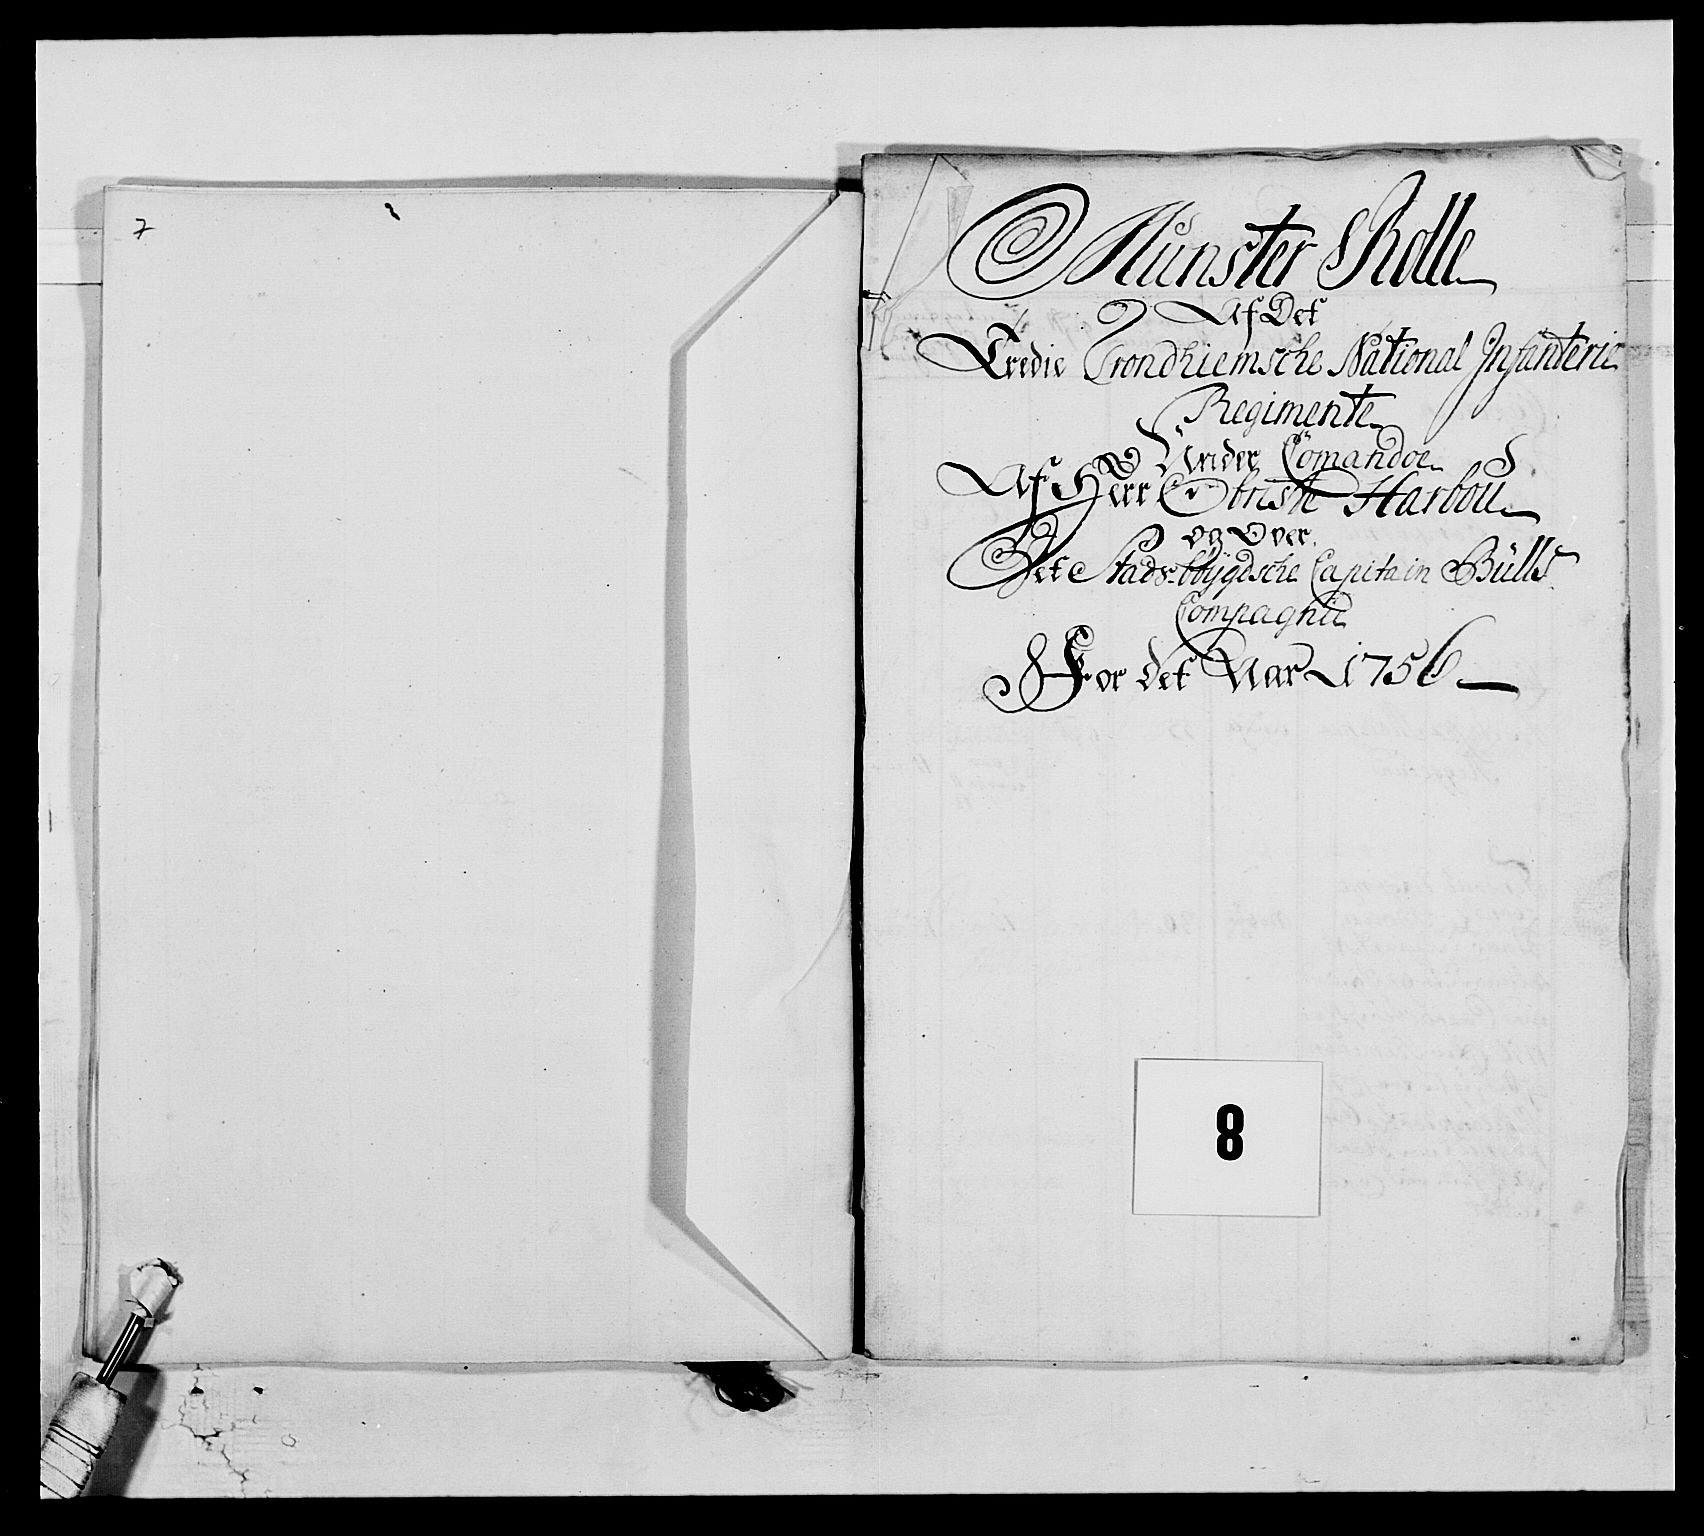 7
Munster Rolle
Af Det
Tredie Trondhiemsche National Infanterie
Regimente
Under Comandoe
Af Herr Obriste Harbou
og Over
Det Stadsbbÿgdsche Capitain Bülls
Compagnie
For det Aar 1756
8